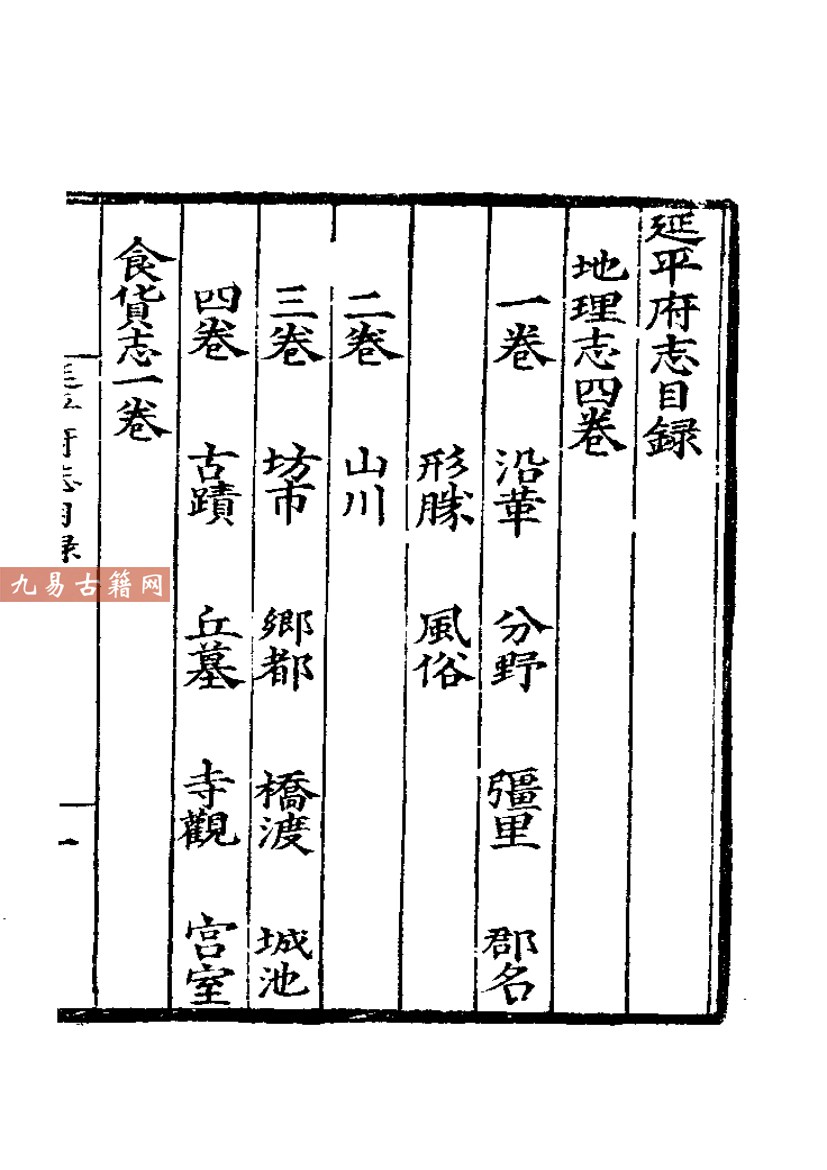 延平府志目録
地理志四卷
一卷 沿革 分野 彊里 郡名
形勝 風俗
二卷 山川
三卷 坊市 鄉都 橋渡 城池
四卷 古蹟 丘墓 寺觀 宮室
食貨志一卷
延平府志目録 一
九易古籍网